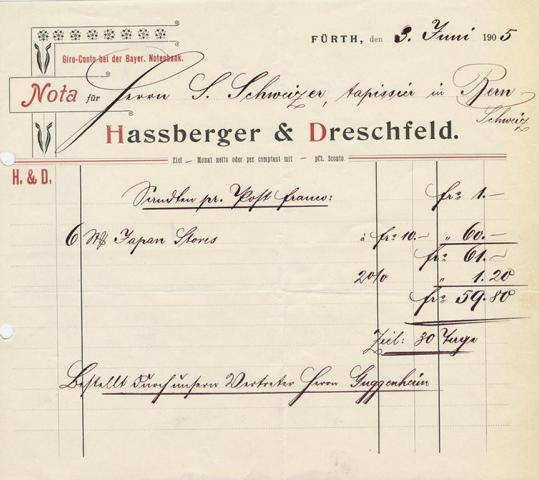 FÜRTH, den 3. Juni 1905
Giro-Conto bei der Bayer. Notenbank.
Nota für Herrn S. Schweizer, tapissier in Bern
Schweiz
Hassberger & Dreschfeld.
Ziel — Monat netto oder per comptant mit — pCt. Sconto.
H. & D.
Sandten pr. Post franco: frs 1.—
6 Stck Japan Stores à frs 10.— " 60.—
frs 61.—
2% " 1.20
frs 59.80
Ziel: 30 Tage
Bestellt durch unsern Vertreter Herrn Guggenheim